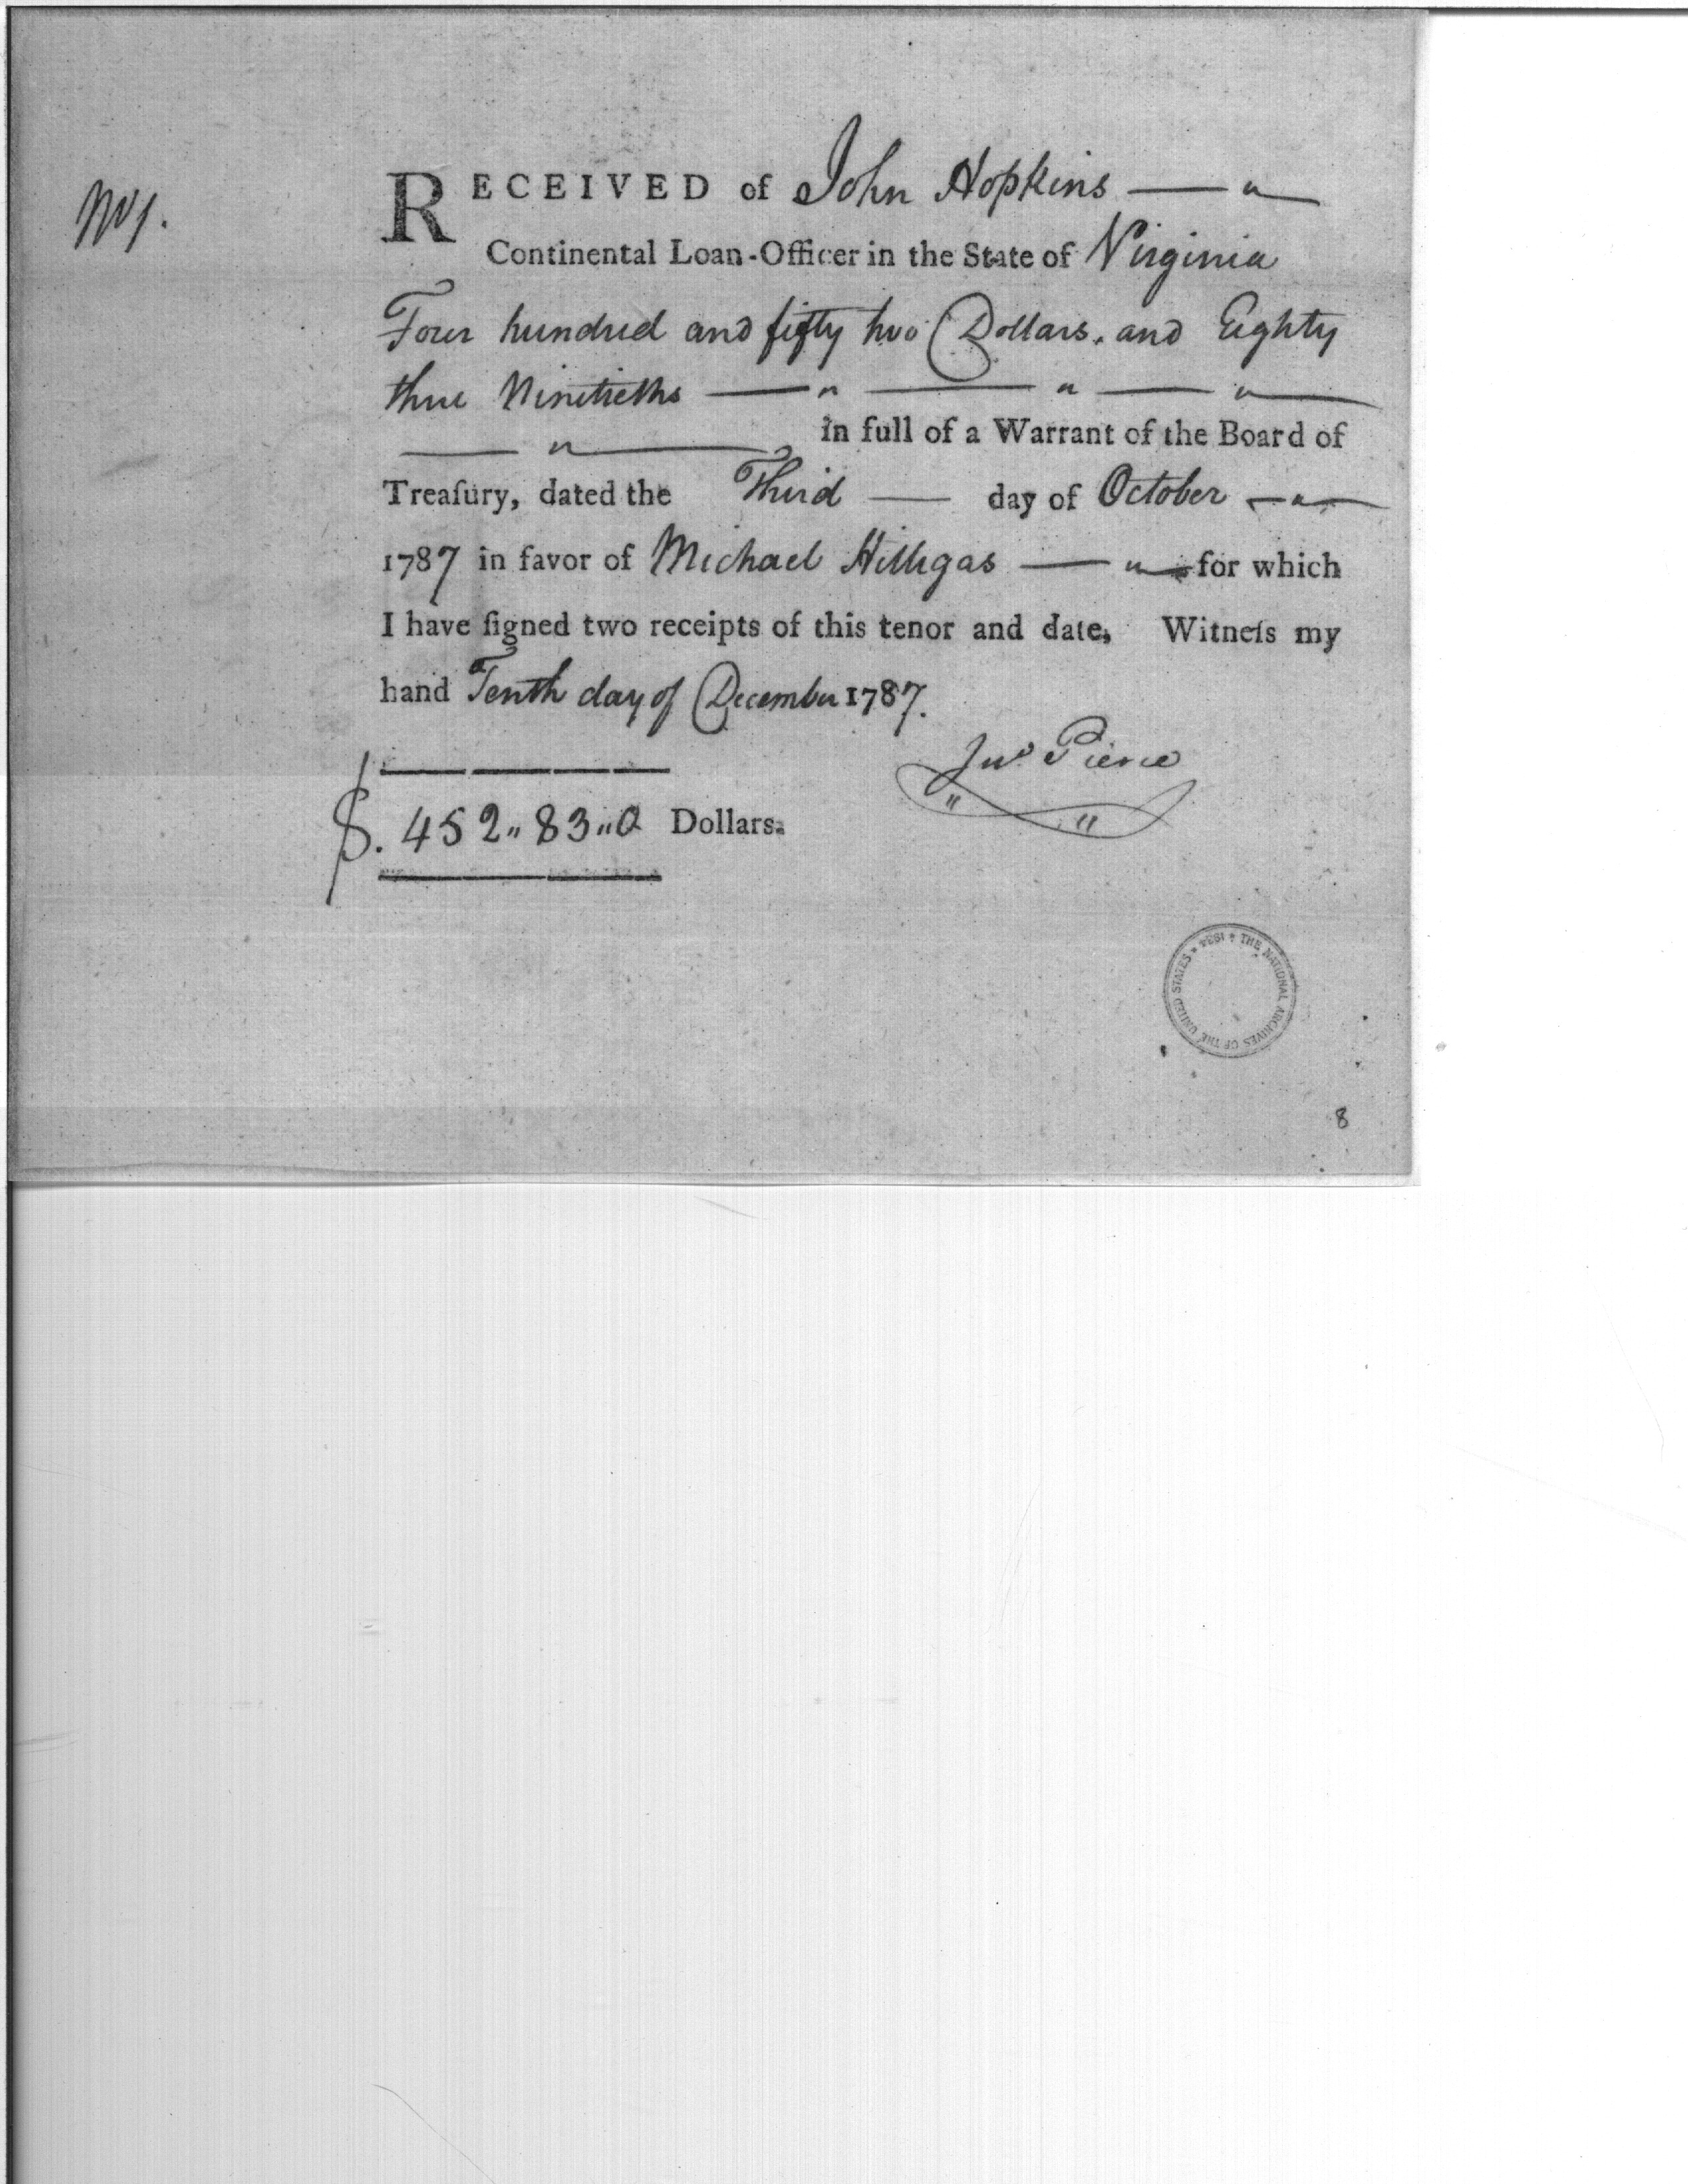 No 1.
RECEIVED of John Hopkins
Continental Loan-Officer in the State of Virginia
Four hundred and fifty two Dollars. and Eighty
three Ninetieths
in full of a Warrant of the Board of
Treaſury, dated the Third day of October
1787 in favor of Michael Hillegas for which
I have ſigned two receipts of this tenor and date, Witneſs my
hand Tenth day of December 1787.
Jno. Pierce
$. 452 " 83 " 0 Dollars.
THE NATIONAL ARCHIVES OF THE UNITED STATES * 1934 *
8